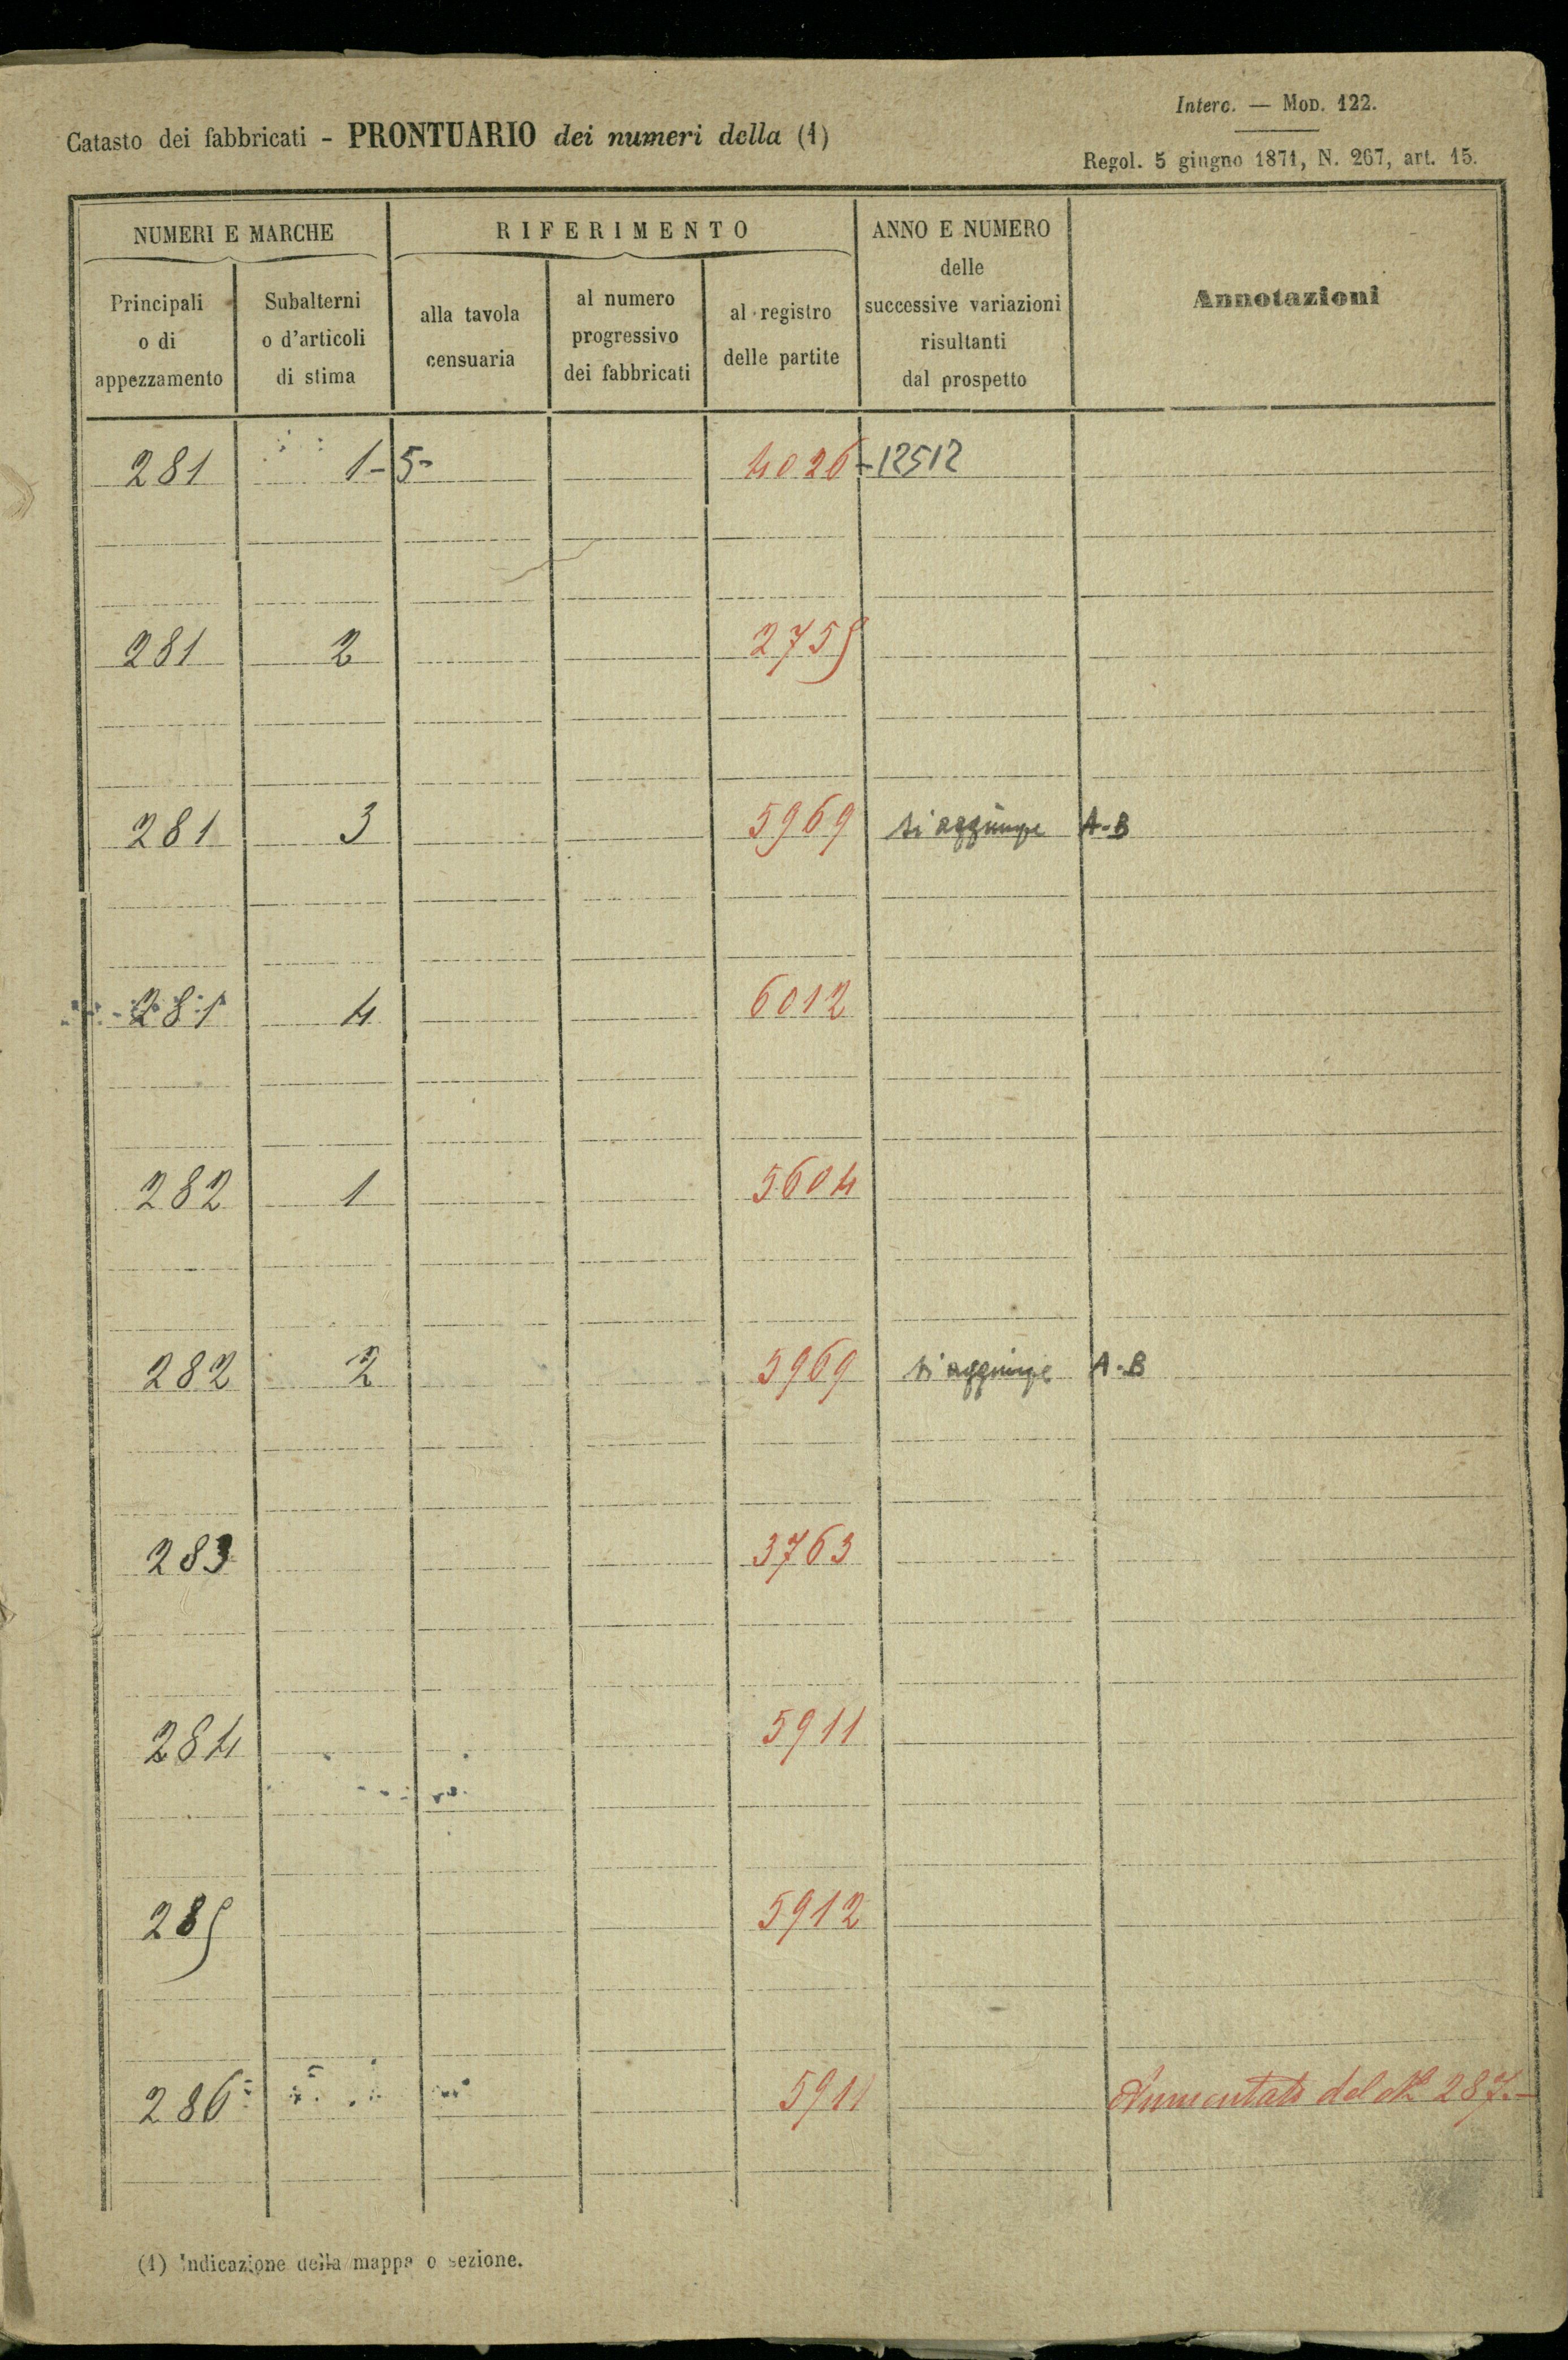 Interc. — Mod. 122.
Catasto dei fabbricati - PRONTUARIO dei numeri della (1)
Regol. 5 giugno 1871, N. 267, art. 15.
NUMERI E MARCHE
RIFERIMENTO
ANNO E NUMERO
delle
successive variazioni
risultanti
dal prospetto
Annotazioni
Principali
o di
appezzamento
Subalterni
o d'articoli
di stima
alla tavola
censuaria
al numero
progressivo
dei fabbricati
al registro
delle partite
281 1-5- 4026-12512
281 2 2755
281 3 5969 si aggiunge A-B
281 4 6012
282 1 5604
282 2 5969 si aggiunge A-B
283 3763
284 5911
285 5912
286 5911 Aumentato del No 287.-
(1) Indicazione della mappa o sezione.